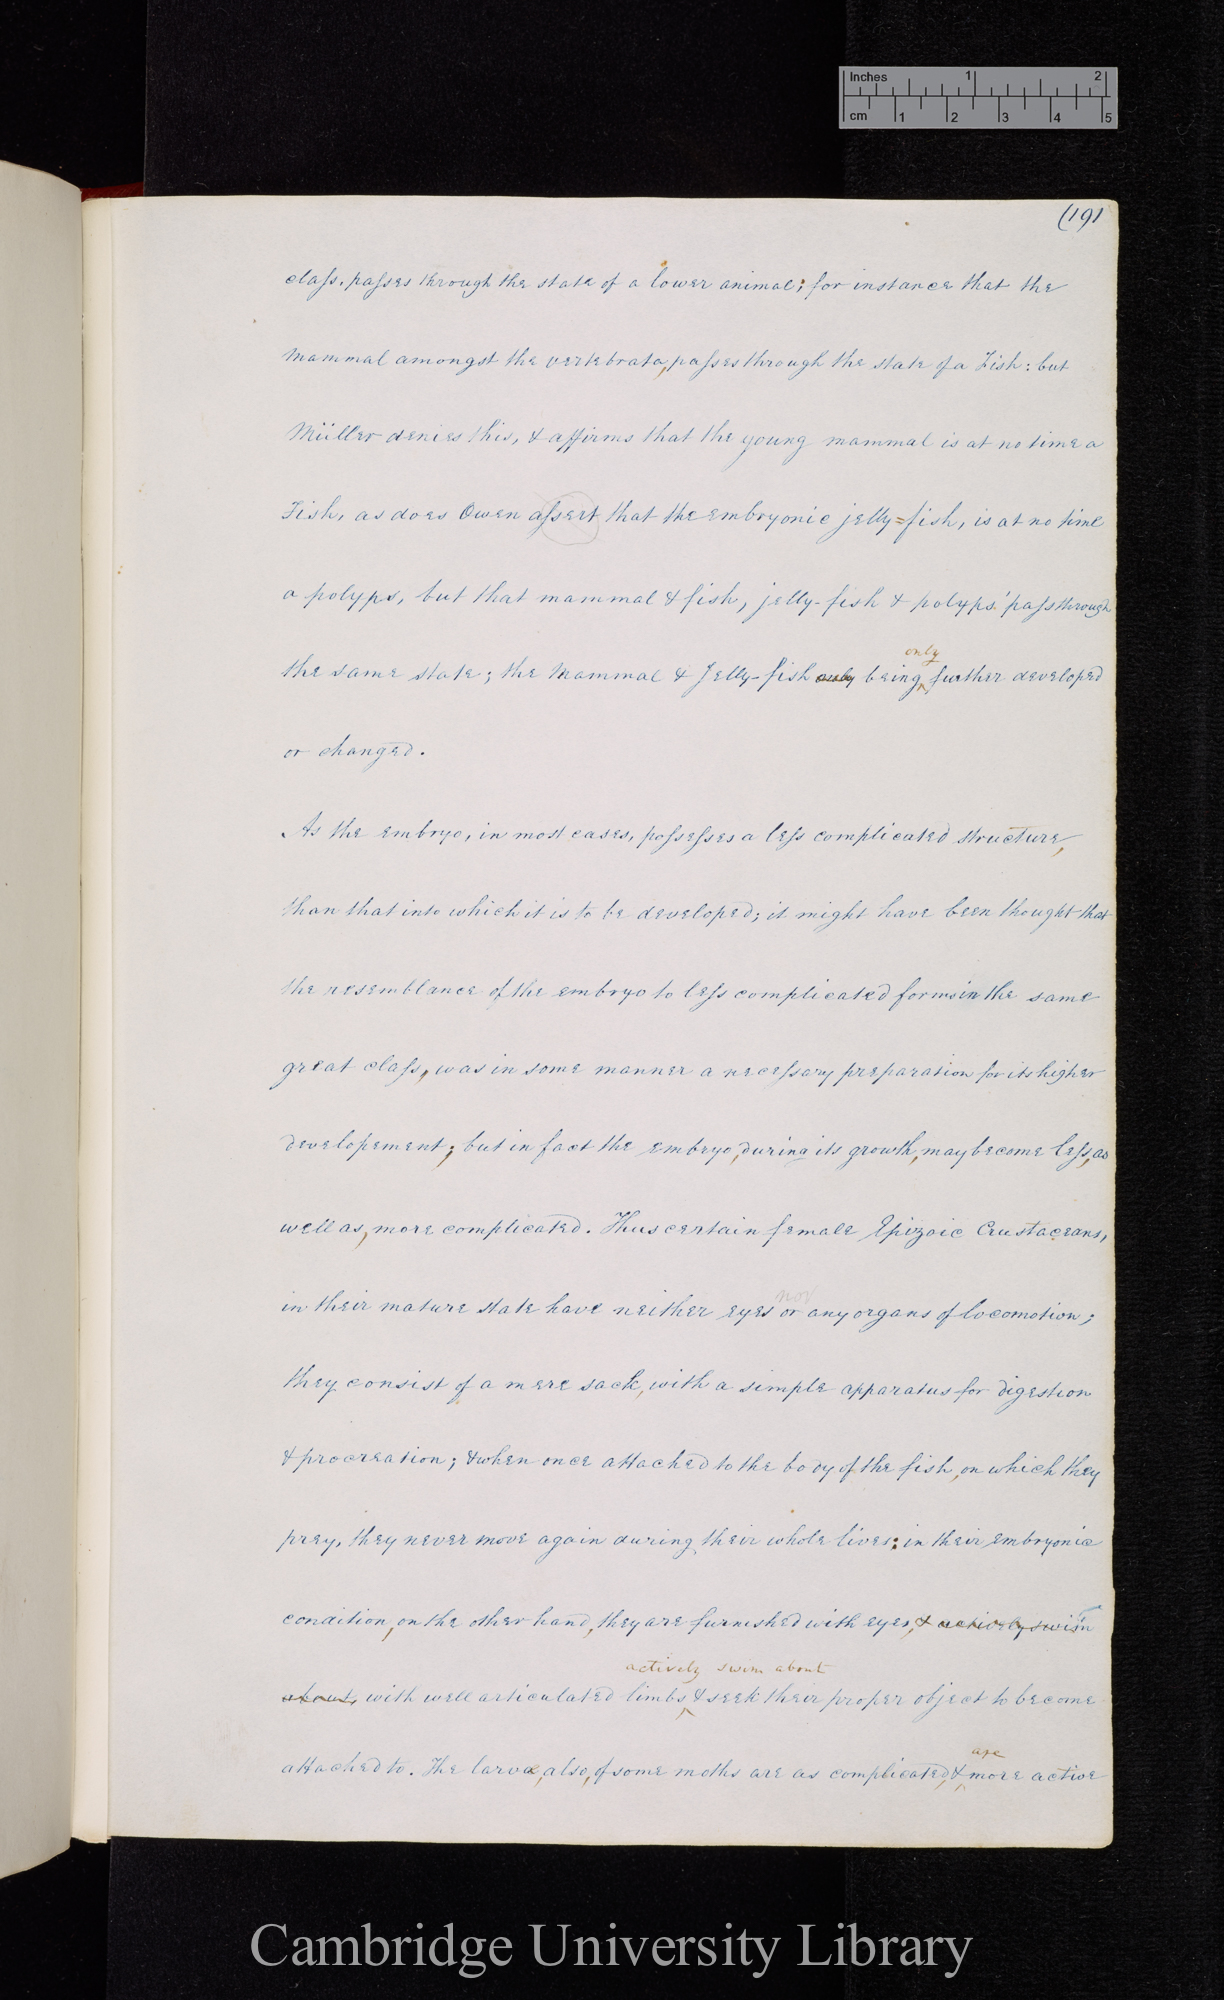 Inches 1 2
cm 1 2 3 4 5
(191
class, passes through the state of a lower animal; for instance that the
Mammal amongst the vertebrata, passes through the state of a Fish: but
Müller denies this, & affirms that the young mammal is at no time a
Fish, as does Owen assert that the embryonic jelly=fish, is at no time
a polyps, but that mammal & fish, jelly-fish & polyps' pass through
only
the same state; the Mammal & Jelly-fish only being further developed
or changed.
As the embryo, in most cases, possesses a less complicated structure,
than that into which it is to be developed; it might have been thought that
the resemblance of the embryo to less complicated forms in the same
great class, was in some manner a necessary preparation for its higher
developement; but in fact the embryo, during its growth, may become less, as
well as, more complicated. Thus certain female Epizoic Crustaceans,
nor
in their mature state have neither eyes or any organs of locomotion;
they consist of a mere sack, with a simple apparatus for digestion
& procreation; & when once attached to the body of the fish, on which they
prey, they never move again during their whole lives: in their embryonic
condition, on the other hand, they are furnished with eyes, & actively swim
actively swim about
about, with well articulated limbs, & seek their proper object to become
are
attached to. The larvæ, also, of some moths are as complicated, & more active
Cambridge University Library